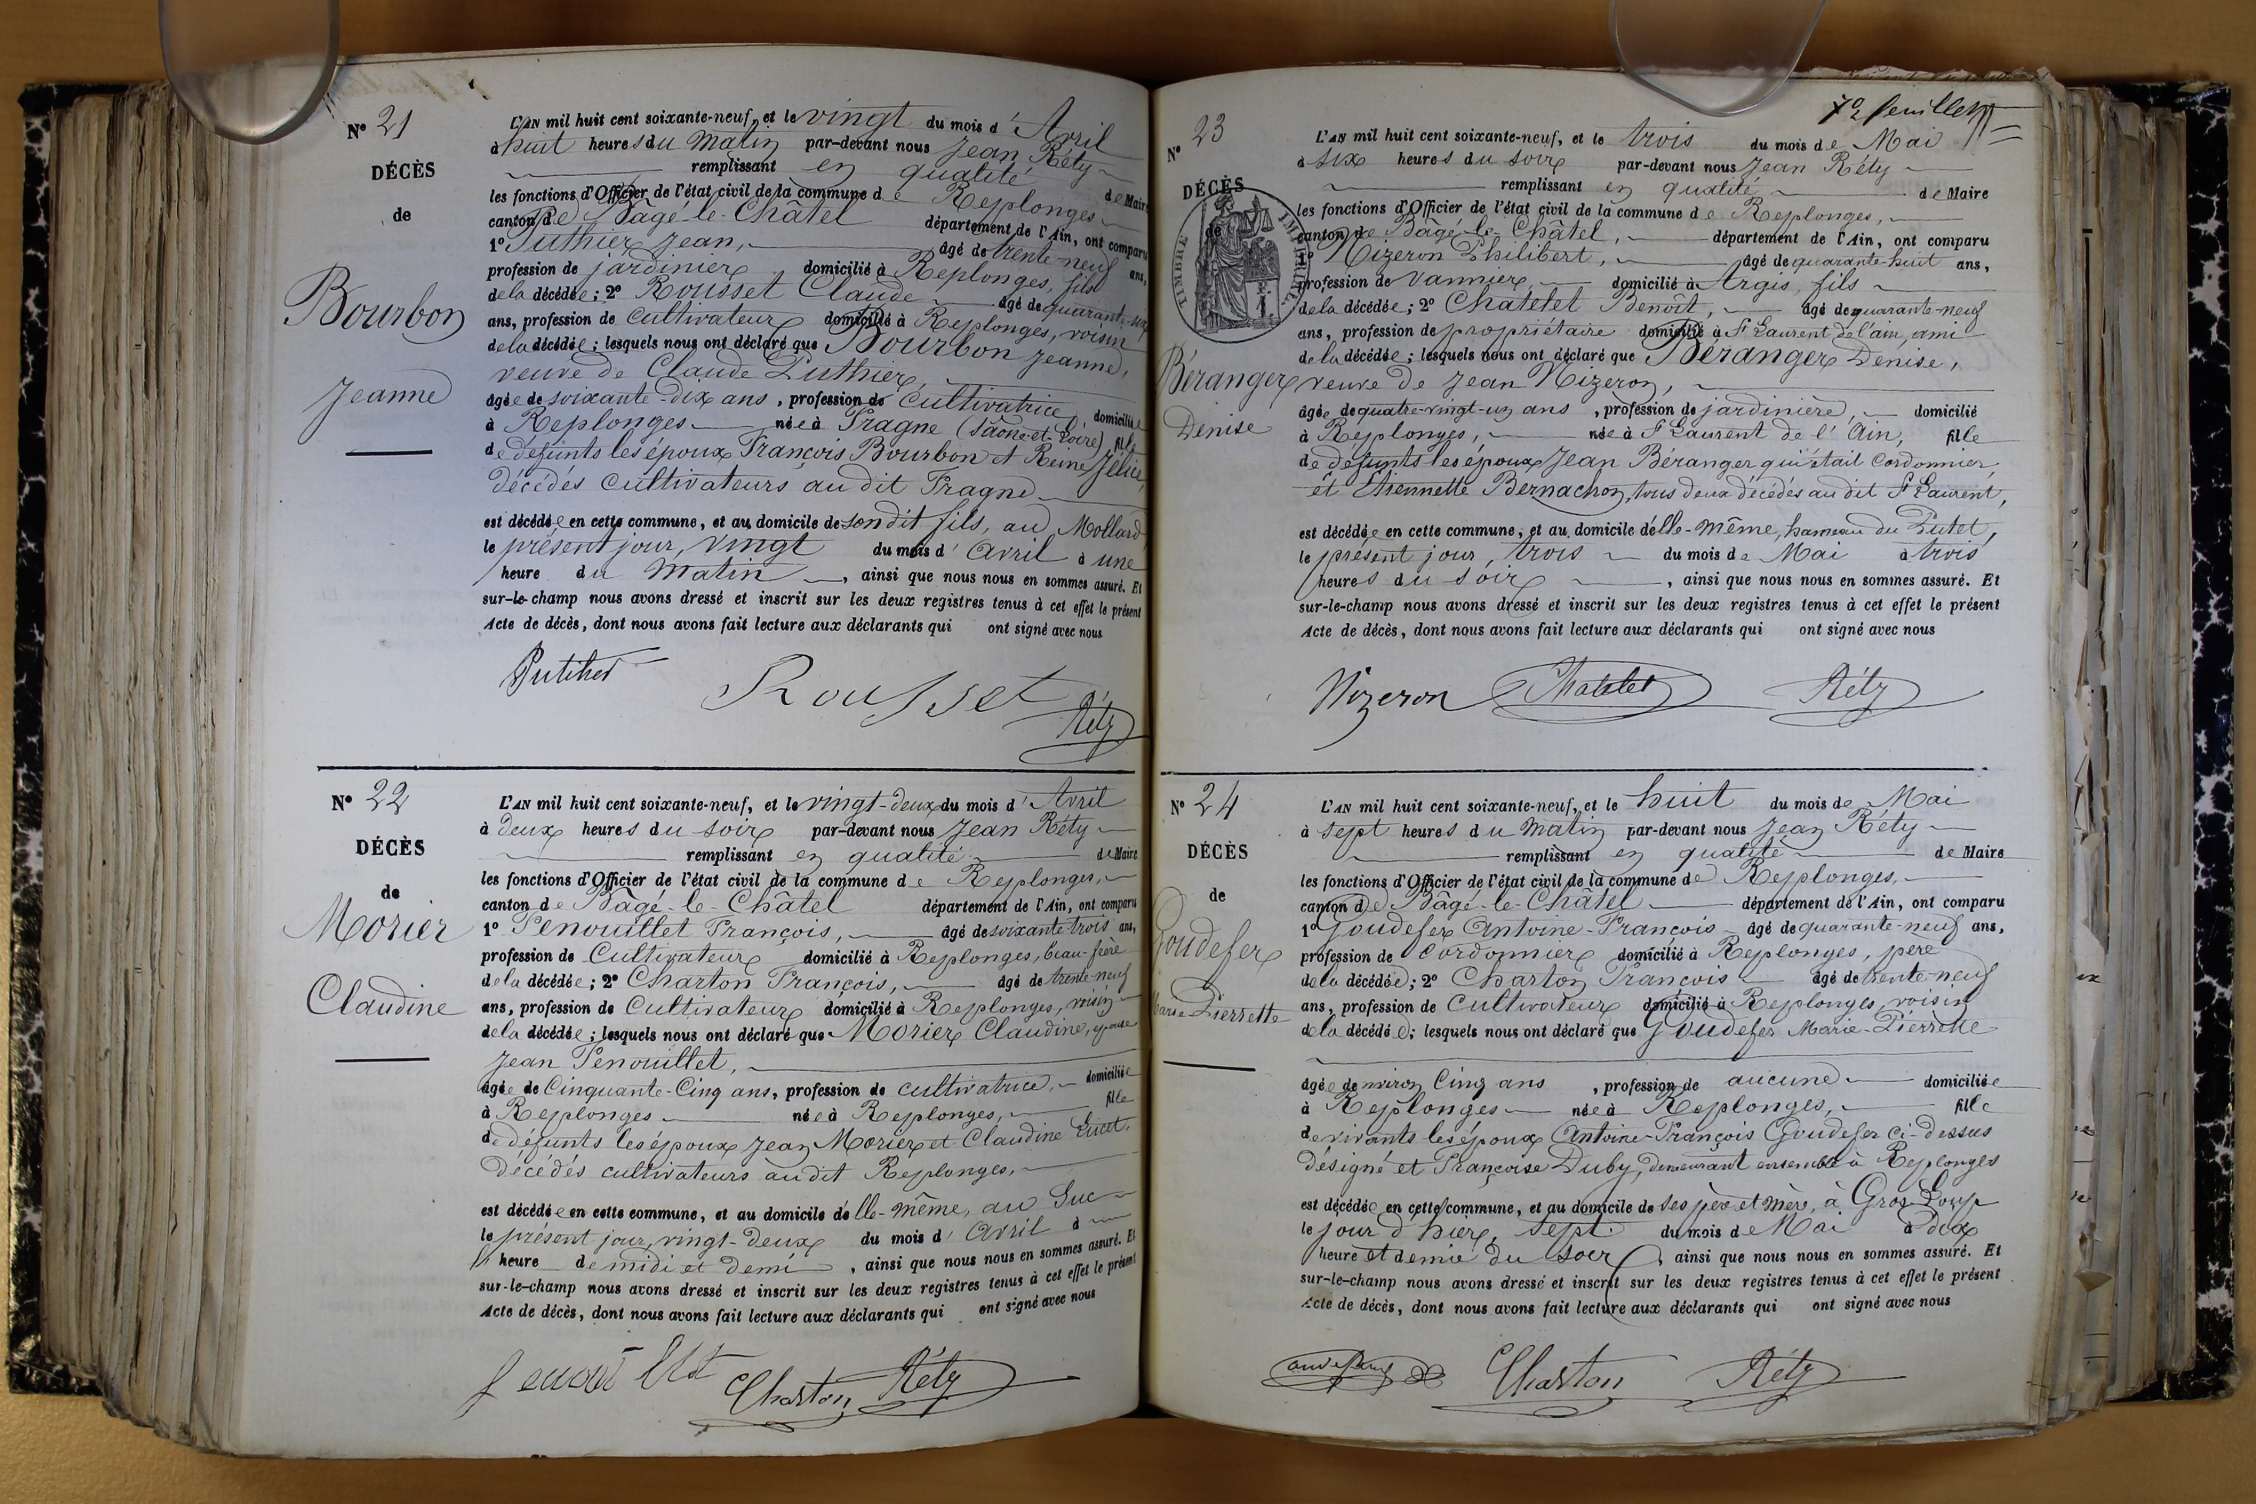 N° 21
DÉCÈS
de
Bourbon
Jeanne
L'AN mil huit cent soixante-neuf, et le vingt du mois d'Avril
à huit heures du matin par-devant nous Jean Réty
remplissant en qualité de Maire
les fonctions d'Officier de l'état civil de la commune de Replonges
canton de Bâgé-le-Châtel département de l'Ain, ont comparu
1° Puthier Jean, âgé de trente-neuf ans,
profession de jardinier domicilié à Replonges, fils
de la décédée; 2° Rousset Claude âgé de quarante-six
ans, profession de cultivateur domicilié à Replonges, voisin
de la décédée; lesquels nous ont déclaré que Bourbon Jeanne,
veuve de Claude Puthier,
âgée de soixante dix ans, profession de cultivatrice, domiciliée
à Replonges née à Fragne (Saône-et-Loire) fille
de défunts les époux François Bourbon et Reine
décédés cultivateurs au dit Fragne
est décédée en cette commune, et au domicile de son dit fils, au Mollard
le présent jour, vingt du mois d'avril à une
heure du matin, ainsi que nous nous en sommes assuré. Et
sur-le-champ nous avons dressé et inscrit sur les deux registres tenus à cet effet le présent
Acte de décès, dont nous avons fait lecture aux déclarants qui ont signé avec nous
Puthier
Rousset
Réty
N° 22
DÉCÈS
de
Morier
Claudine
L'AN mil huit cent soixante-neuf, et le vingt-deux du mois d'Avril
à deux heures du soir par-devant nous Jean Réty
remplissant en qualité de Maire
les fonctions d'Officier de l'état civil de la commune de Replonges,
canton de Bâgé-le-Châtel département de l'Ain, ont comparu
1° Penouillet François, âgé de soixante trois ans,
profession de Cultivateur domicilié à Replonges, beau-frère
de la décédée; 2° Charton François, âgé de trente-neuf
ans, profession de Cultivateur domicilié à Replonges, voisin
de la décédée; lesquels nous ont déclaré que Morier Claudine, épouse
Jean Penouillet,
âgée de Cinquante-Cinq ans, profession de cultivatrice, domiciliée
à Replonges née à Replonges, fille
de défunts les époux Jean Morier et Claudine Lucet.
Décédés cultivateurs au dit Replonges,
est décédée en cette commune, et au domicile d'elle-même, au Suc
le présent jour, vingt-deux du mois d'avril à
heure de midi et demi, ainsi que nous nous en sommes assuré. Et
sur-le-champ nous avons dressé et inscrit sur les deux registres tenus à cet effet le présent
Acte de décès, dont nous avons fait lecture aux déclarants qui ont signé avec nous
Charton Réty
7e feuillet
N° 23
DÉCÈS
de
TIMBRE IMPÉRIAL
Béranger
Denise
L'AN mil huit cent soixante-neuf, et le trois du mois de Mai
à six heures du soir par-devant nous Jean Réty
remplissant en qualité de Maire
les fonctions d'Officier de l'état civil de la commune de Replonges,
canton de Bâgé-le-Châtel, département de l'Ain, ont comparu
1° Nizeron Philibert, âgé de quarante-huit ans,
profession de vannier, domicilié à Argis, fils
de la décédée; 2° Chatelet Benoît, âgé de quarante-neuf
ans, profession de propriétaire domicilié à St Laurent de l'ain, ami
de la décédée; lesquels nous ont déclaré que Béranger Denise,
veuve de Jean Nizeron,
âgée de quatre-vingt-un ans, profession de jardinière, domicilié
à Replonges, née à St Laurent de l'Ain, fille
de défunts les époux Jean Béranger qui était cordonnier,
et Etiennette Bernachon, tous deux décédés au dit St Laurent,
est décédée en cette commune, et au domicile d'elle-même, hameau du Putet,
le présent jour, trois du mois de Mai à trois
heures du soir, ainsi que nous nous en sommes assuré. Et
sur-le-champ nous avons dressé et inscrit sur les deux registres tenus à cet effet le présent
Acte de décès, dont nous avons fait lecture aux déclarants qui ont signé avec nous
Nizeron Chatelet Réty
N° 24
DÉCÈS
de
Goudefer
Marie-Pierrette
L'AN mil huit cent soixante-neuf, et le huit du mois de Mai
à sept heures du matin par-devant nous Jean Réty
remplissant en qualité de Maire
les fonctions d'Officier de l'état civil de la commune de Replonges,
canton de Bâgé-le-Châtel département de l'Ain, ont comparu
1° Goudefer Antoine-François âgé de quarante-neuf ans,
profession de cordonnier domicilié à Replonges, père
de la décédée; 2° Charton François âgé de trente-neuf
ans, profession de cultivateur domicilié à Replonges, voisin
de la décédée; lesquels nous ont déclaré que Goudefer Marie-Pierrette
âgée de environ Cinq ans, profession de aucune domiciliée
à Replonges née à Replonges, fille
de vivants les époux Antoine-François Goudefer ci-dessus
désigné et Françoise Duby, demeurant ensemble à Replonges
est décédée en cette commune, et au domicile de ses père et mère, à Gros Loup
le jour d'hier, sept du mois de Mai à dix
heure et demie du soir, ainsi que nous nous en sommes assuré. Et
sur-le-champ nous avons dressé et inscrit sur les deux registres tenus à cet effet le présent
Acte de décès, dont nous avons fait lecture aux déclarants qui ont signé avec nous
Charton Réty